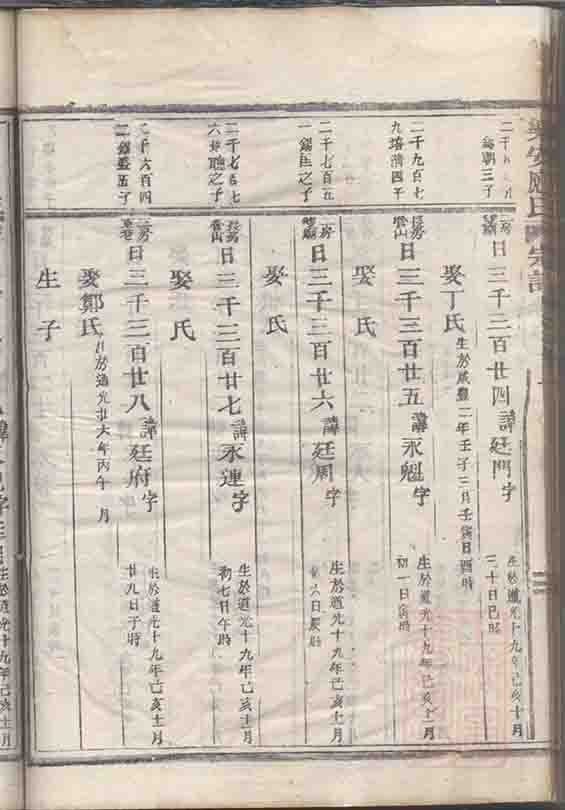 樂安應氏宗譜
二房
日三千三百廿四諱廷門字
生於道光十九年己亥十月
三十日巳時
娶丁氏
生於咸豐二年壬子三月壬寅日酉時
二千九百七
九培清四子
長房
管山
日三千三百廿五諱永魁字
生於道光十九年己亥十一月
初一日寅時
娶氏
二千七百五
一錫匡之子
二房
日三千三百廿六諱廷周字
生於道光十九年己亥十一月
六日辰時
娶氏
二千七百七
六
之子
長房
管山
日三千三百廿七諱永連字
生於道光十九年己亥十一月
初七日午時
娶氏
二千六百四
二錫盛五子
二房
日三千三百廿八諱廷府字
生於道光十九年己亥十一月
廿九日子時
娶鄭氏
生於道光廿六年丙午 月
生子
生於道光十九年己亥十二月